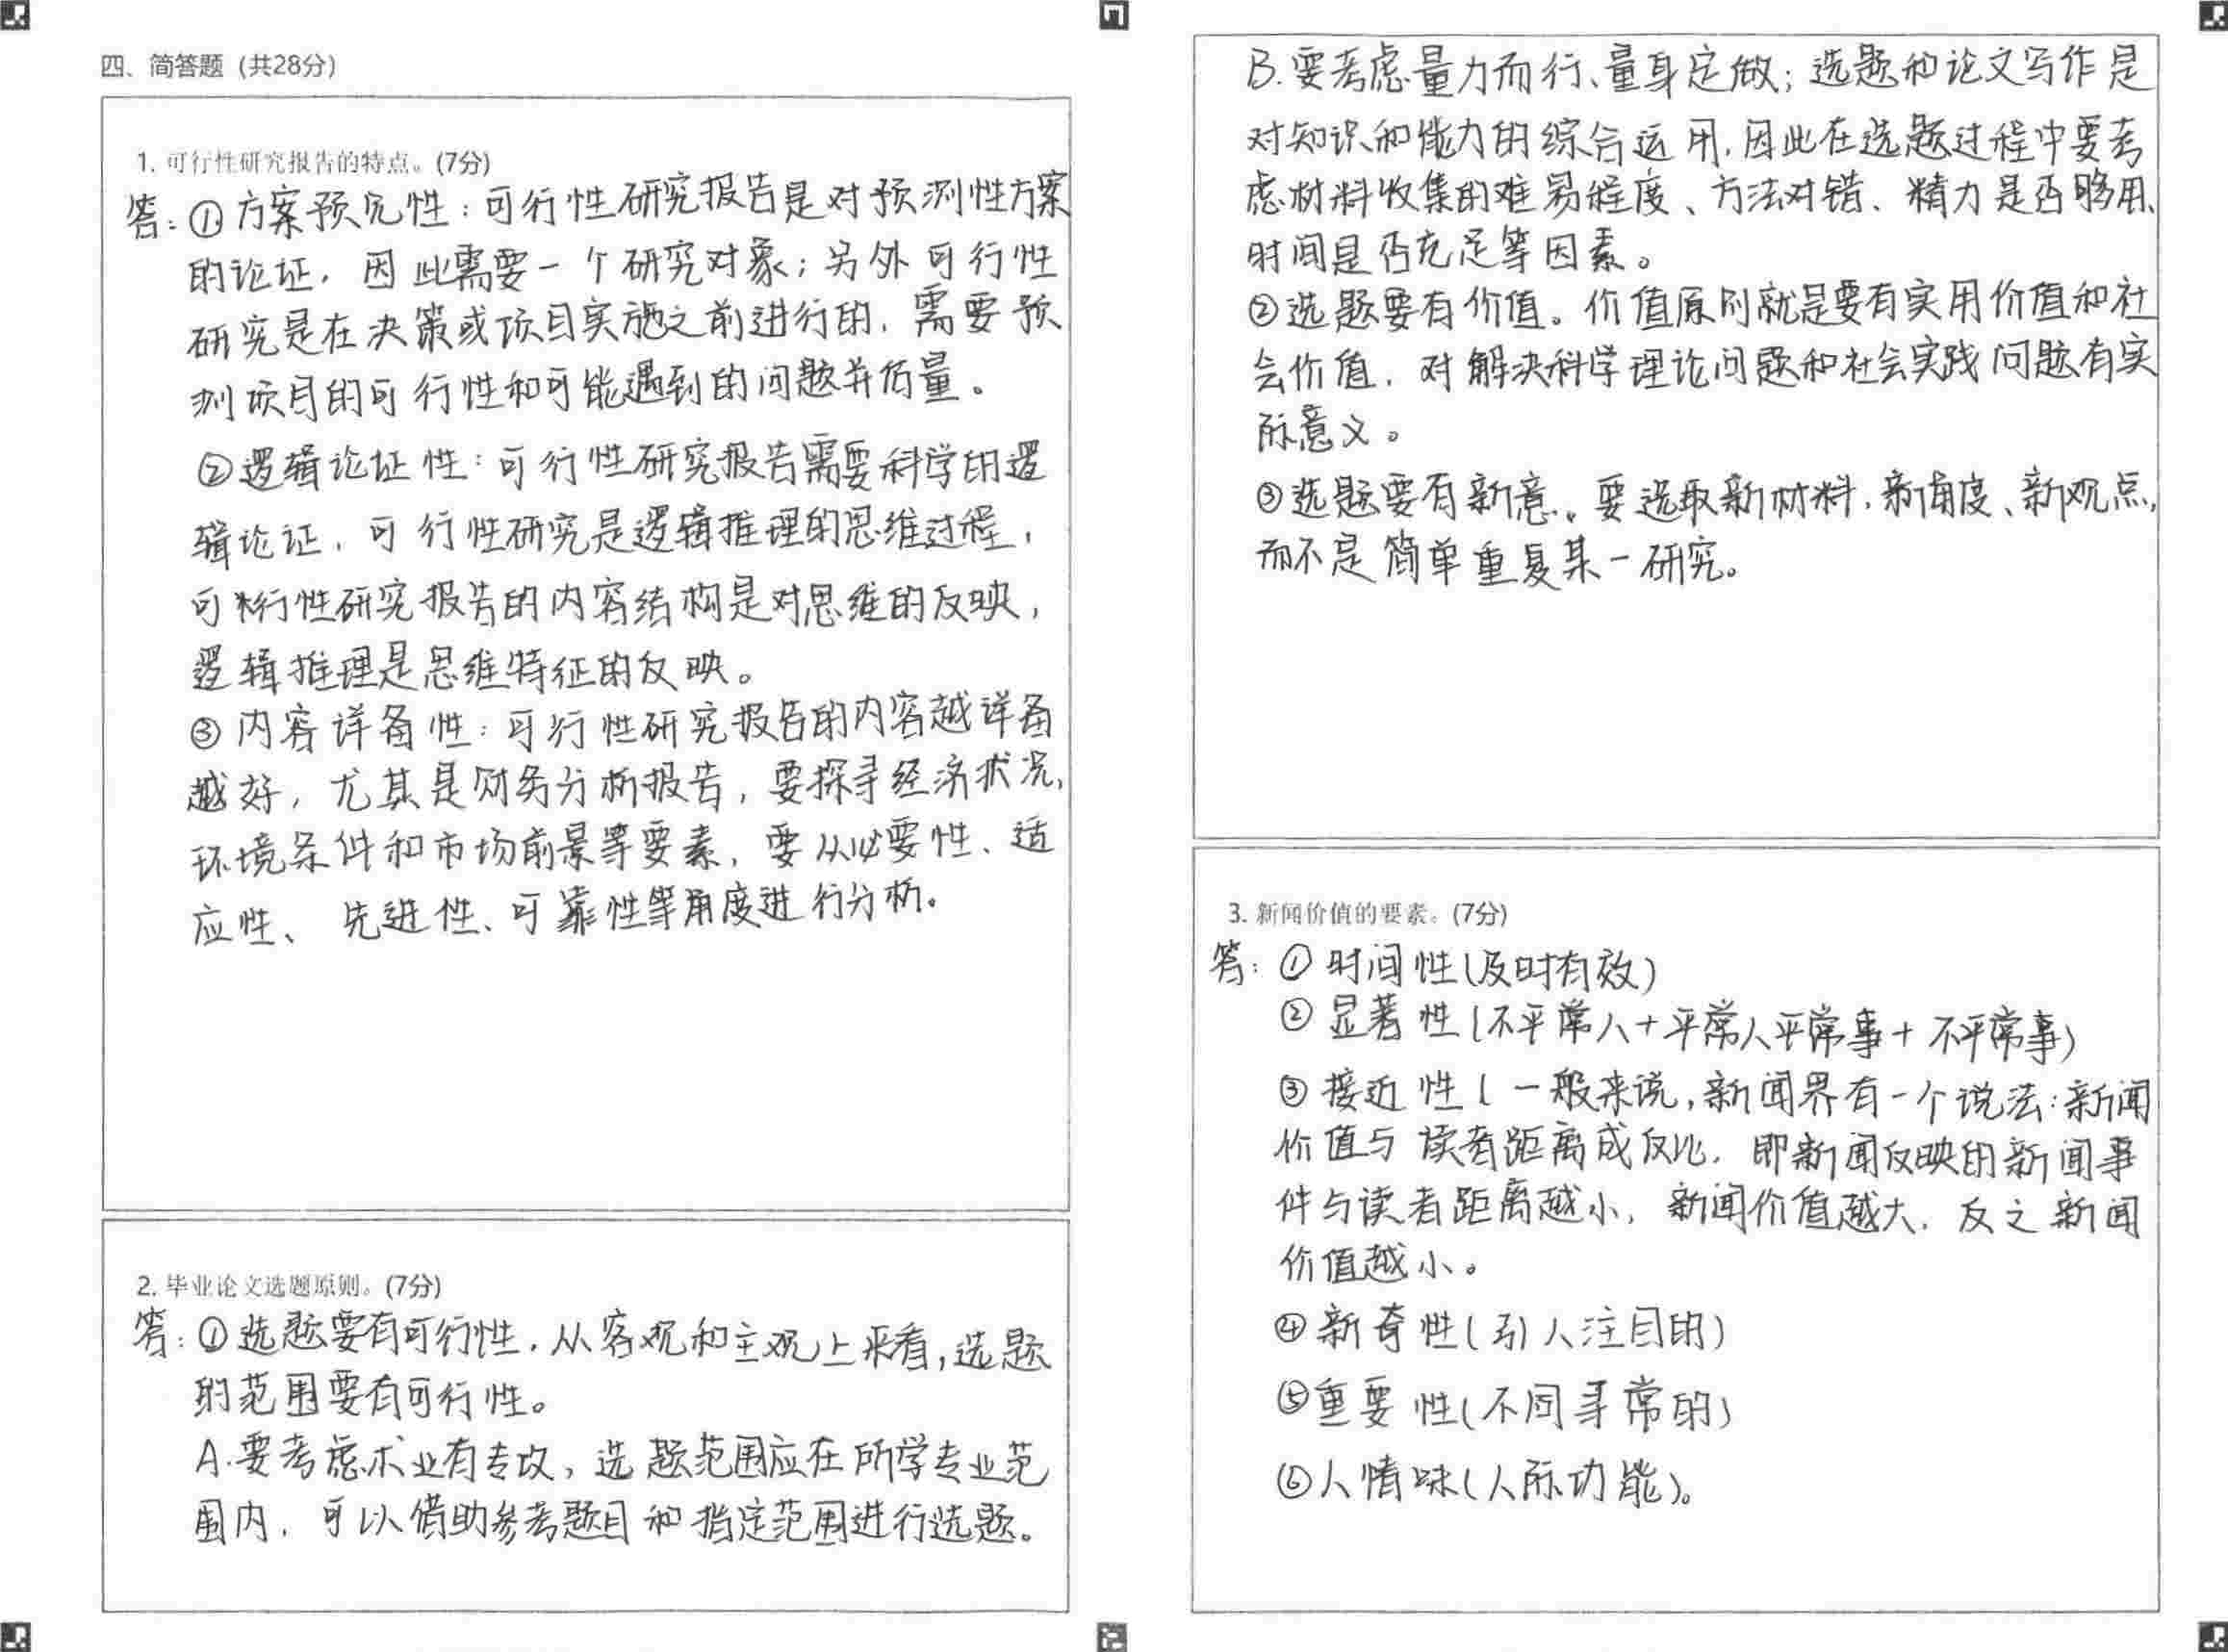 四、简答题（共28分）
1. 可行性研究报告的特点。(7分)
答：①方案预见性：可行性研究报告是对预测性方案
的论证，因此需要一个研究对象；另外可行性
研究是在决策或项目实施之前进行的，需要预
测项目的可行性和可能遇到的问题并估量。
②逻辑论证性：可行性研究报告需要科学的逻
辑论证，可行性研究是逻辑推理的思维过程，
可行性研究报告的内容结构是对思维的反映，
逻辑推理是思维特征的反映。
③内容详备性：可行性研究报告的内容越详备
越好，尤其是财务分析报告，要探寻经济状况，
环境条件和市场前景等要素，要从必要性、适
应性、先进性、可靠性等角度进行分析。
2. 毕业论文选题原则。(7分)
答：①选题要有可行性，从客观和主观上来看，选题
的范围要有可行性。
A.要考虑术业有专攻，选题范围应在所学专业范
围内，可以借助参考题目和指定范围进行选题。
B.要考虑量力而行、量身定做；选题和论文写作是
对知识和能力的综合运用，因此在选题过程中要考
虑材料收集的难易程度、方法对错、精力是否够用、
时间是否充足等因素。
②选题要有价值。价值原则就是要有实用价值和社
会价值，对解决科学理论问题和社会实践问题有实
际意义。
③选题要有新意。要选取新材料，新角度、新观点，
而不是简单重复某一研究。
3. 新闻价值的要素。(7分)
答：①时间性(及时有效)
②显著性(不平常人+平常人平常事+不平常事)
③接近性(一般来说，新闻界有一个说法：新闻
价值与读者距离成反比，即新闻反映的新闻事
件与读者距离越小，新闻价值越大，反之新闻
价值越小。
④新奇性(引人注目的)
⑤重要性(不同寻常的)
⑥人情味(人际功能)。